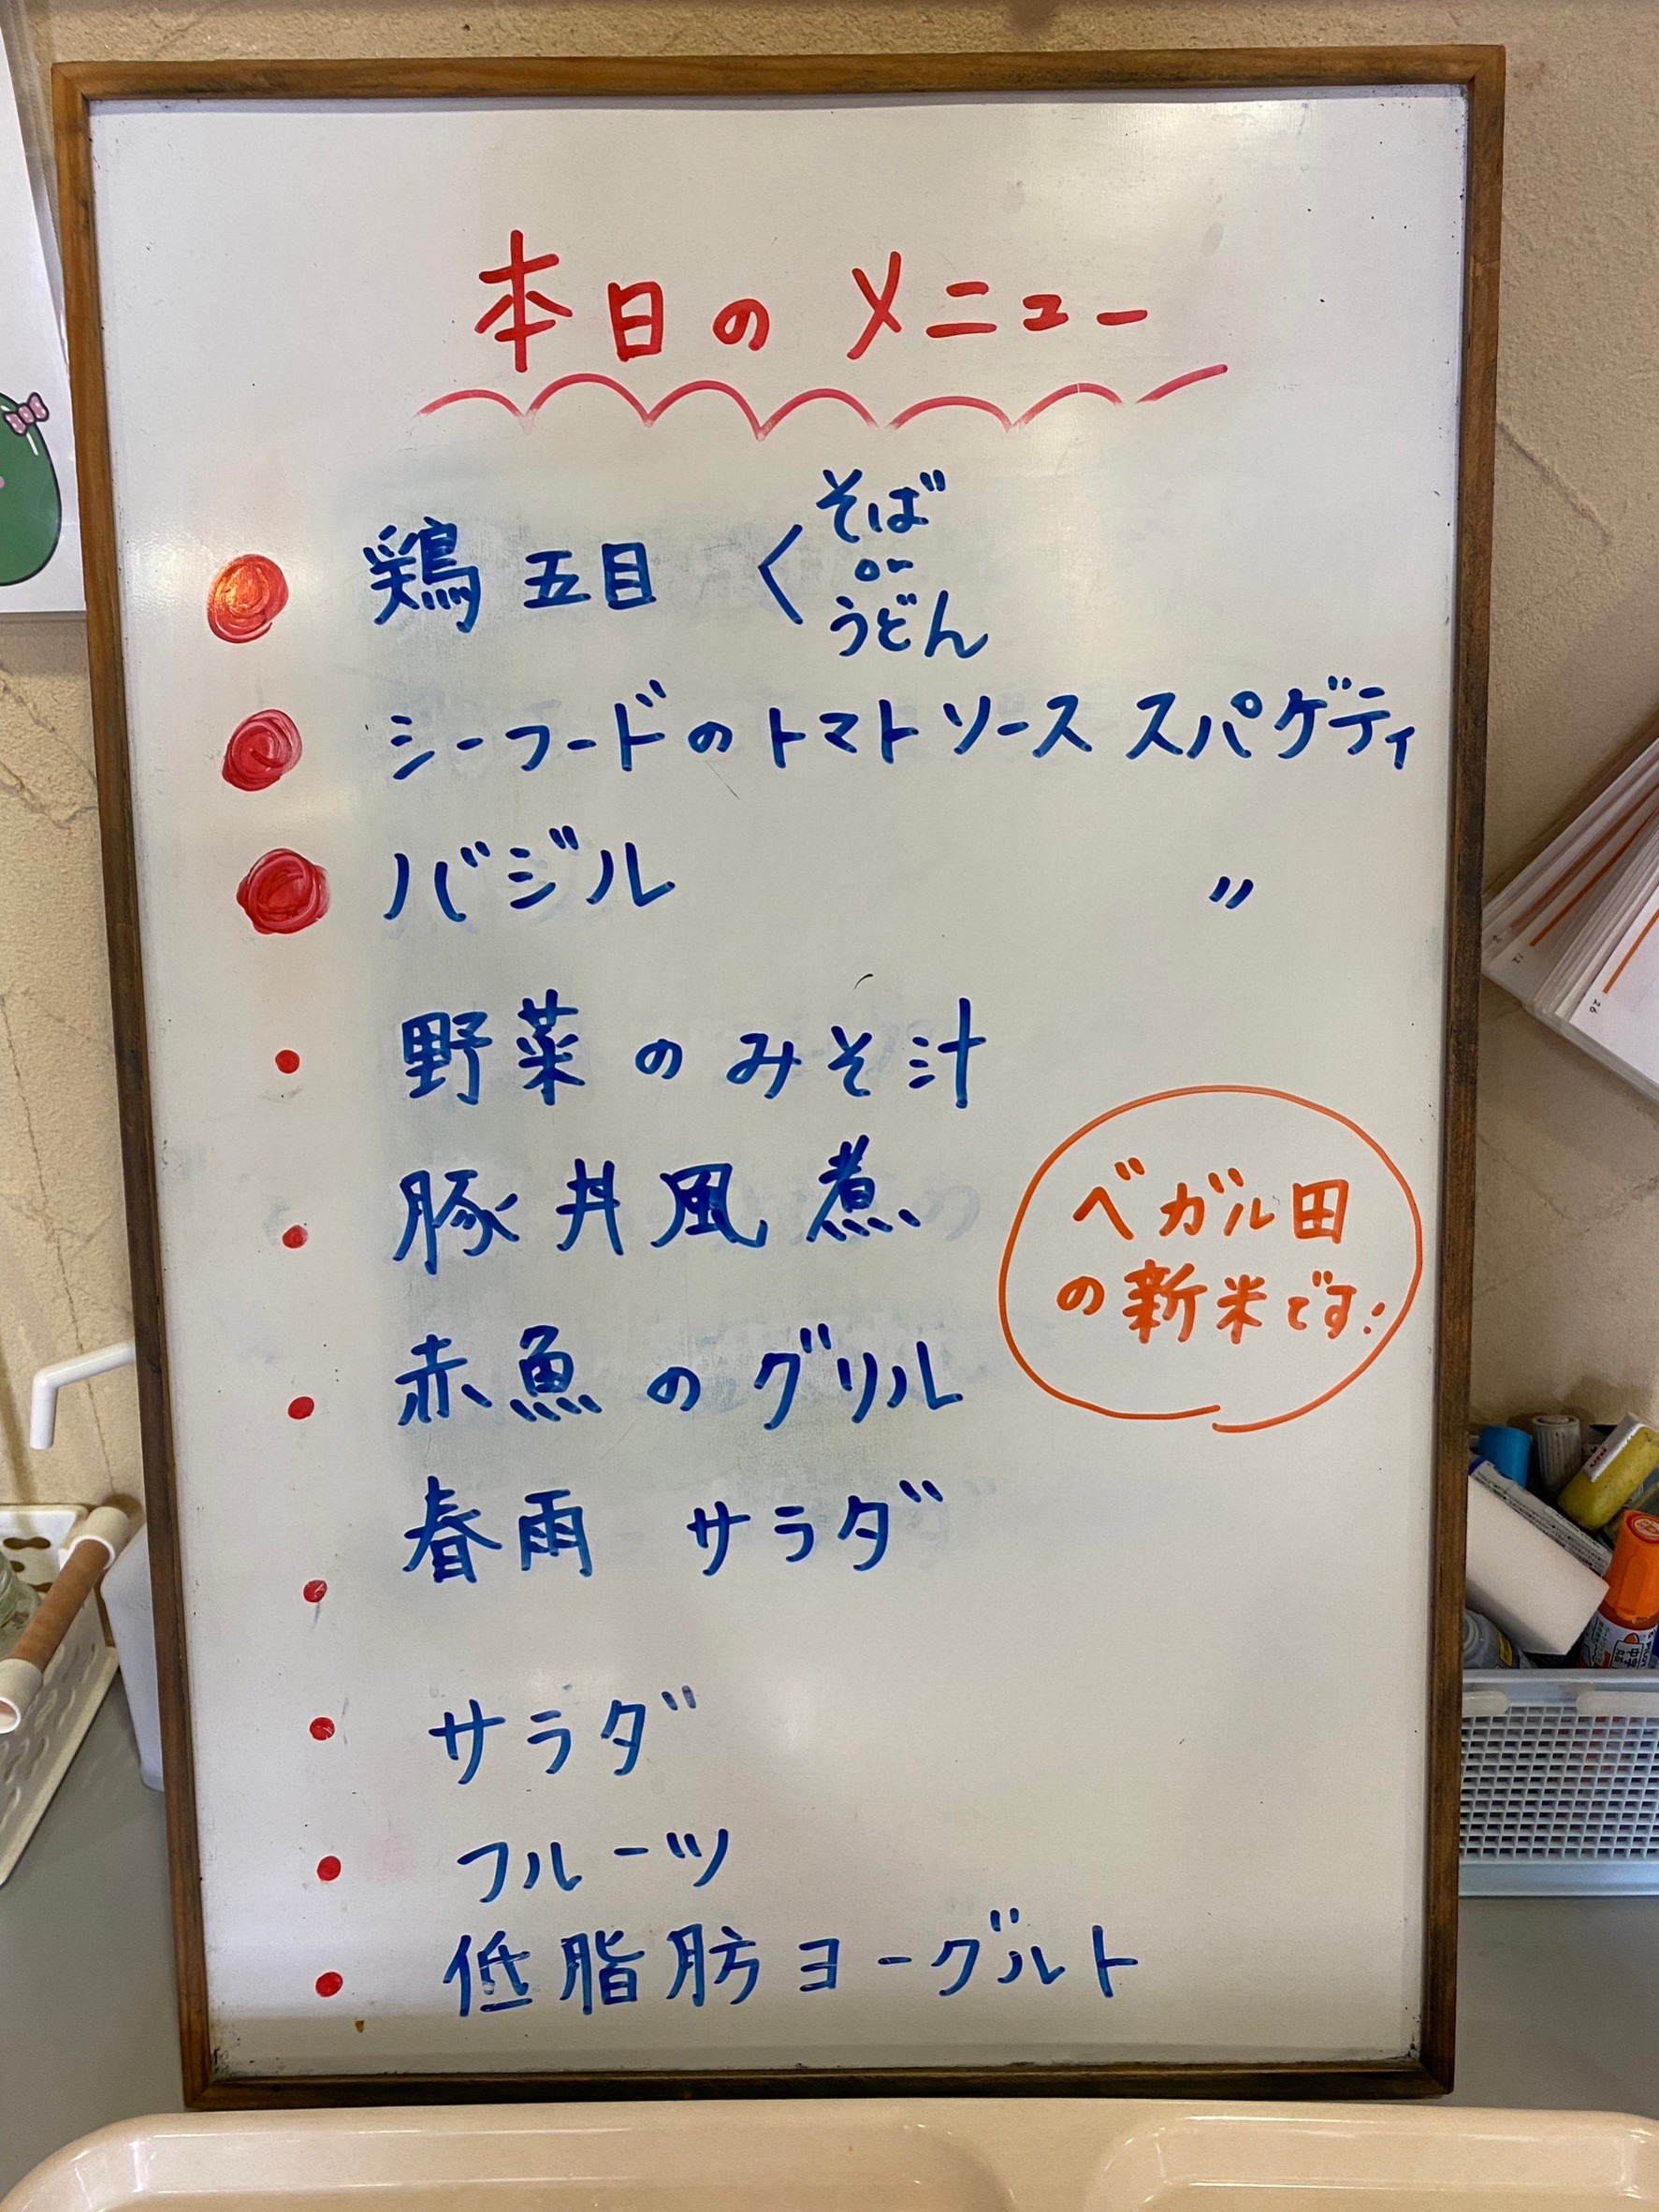 本日のメニュー
鶏五目 < そば
or
うどん
シーフードのトマトソース スパゲティ
バジル 〃
野菜のみそ汁
豚丼風煮
赤魚のグリル
ベガル田
の新米です!
春雨 サラダ
サラダ
フルーツ
低脂肪ヨーグルト